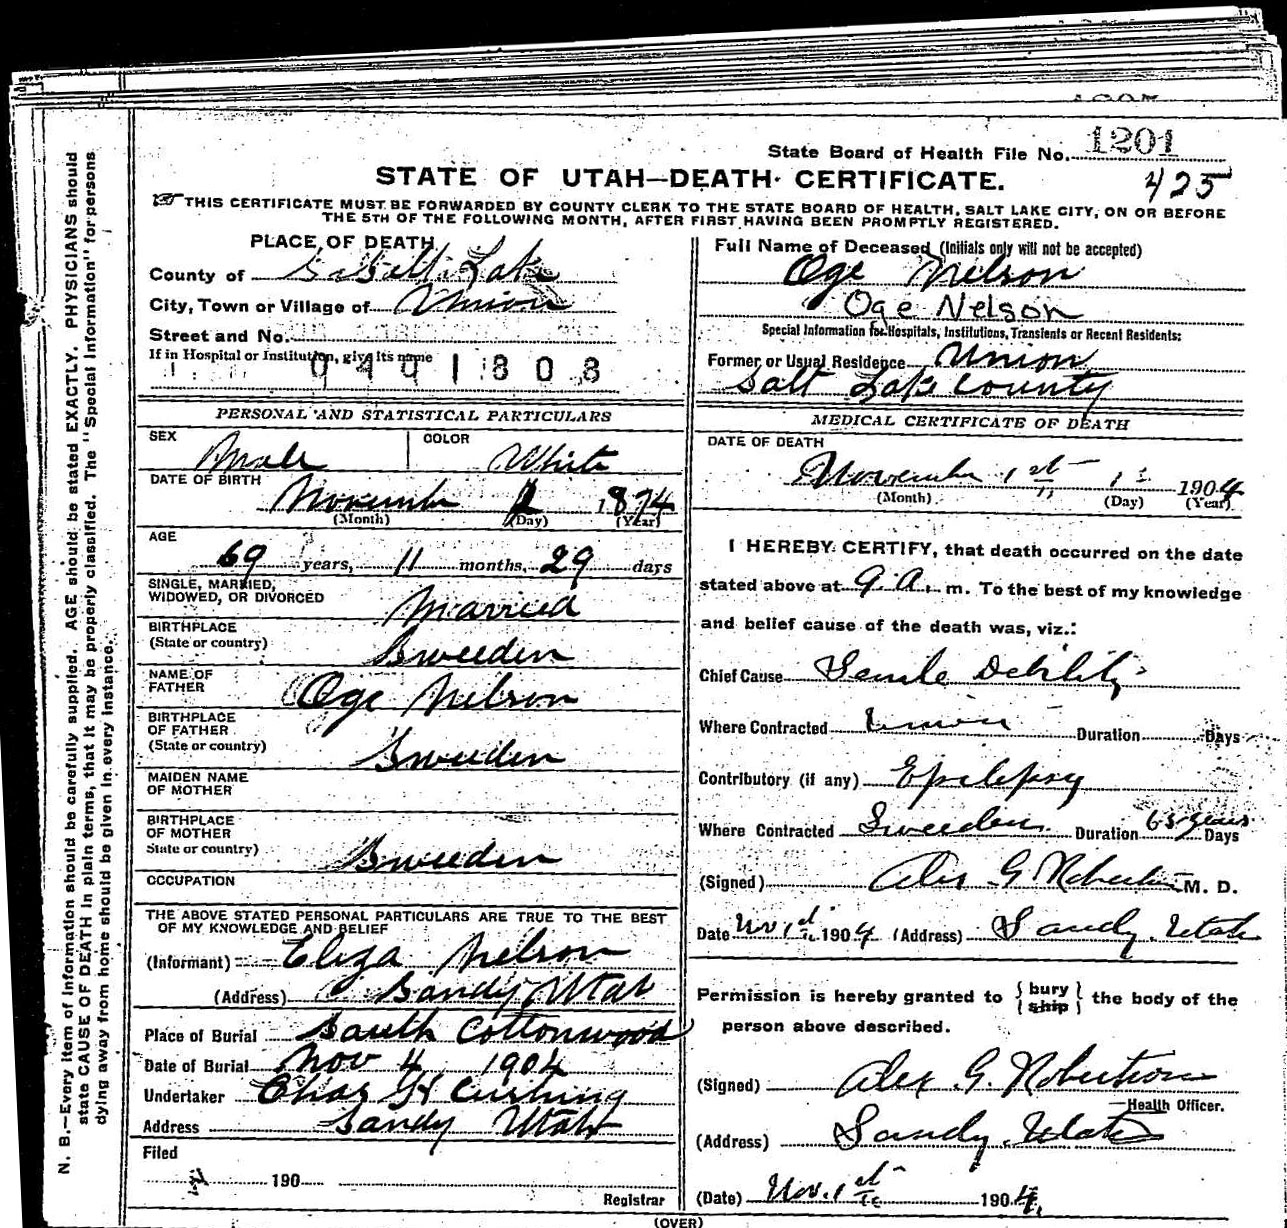 State Board of Health File No. 1201
STATE OF UTAH—DEATH CERTIFICATE.
425
THIS CERTIFICATE MUST BE FORWARDED BY COUNTY CLERK TO THE STATE BOARD OF HEALTH, SALT LAKE CITY, ON OR BEFORE
THE 5TH OF THE FOLLOWING MONTH, AFTER FIRST HAVING BEEN PROMPTLY REGISTERED.
N. B.—Every item of information should be carefully supplied. AGE should be stated EXACTLY. PHYSICIANS should
state CAUSE OF DEATH in plain terms, that it may be properly classified. The "Special Information" for persons
dying away from home should be given in every instance.
PLACE OF DEATH
County of Salt Lake
City, Town or Village of Union
Street and No.
If in Hospital or Institution, give its name
0401808
PERSONAL AND STATISTICAL PARTICULARS
SEX COLOR
Male White
DATE OF BIRTH
November 1874
(Month) (Day) (Year)
AGE
69 years, 11 months, 29 days
SINGLE, MARRIED,
WIDOWED, OR DIVORCED Married
BIRTHPLACE
(State or country) Sweeden
NAME OF
FATHER Oge Nelson
BIRTHPLACE
OF FATHER
(State or country) Sweeden
MAIDEN NAME
OF MOTHER
BIRTHPLACE
OF MOTHER
State or country) Sweeden
OCCUPATION
THE ABOVE STATED PERSONAL PARTICULARS ARE TRUE TO THE BEST
OF MY KNOWLEDGE AND BELIEF
(Informant) Eliza Nelson
(Address) Sandy Utah
Place of Burial South Cottonwood
Date of Burial Nov 4 1904
Undertaker Chas H Cushing
Address Sandy Utah
Filed
190
Registrar
Full Name of Deceased (Initials only will not be accepted)
Oge Nelson
Oge Nelson
Special Information for Hospitals, Institutions, Transients or Recent Residents:
Former or Usual Residence Union
Salt Lake County
MEDICAL CERTIFICATE OF DEATH
DATE OF DEATH
November 1st 1904
(Month) (Day) (Year)
I HEREBY CERTIFY, that death occurred on the date
stated above at 9 A. m. To the best of my knowledge
and belief cause of the death was, viz.:
Chief Cause Senile Debility
Where Contracted Union Duration Days
Contributory (if any) Epilepsy
Where Contracted Sweeden Duration 65 years Days
(Signed) Alex G Robertson M. D.
Date Nov 1st 1904 (Address) Sandy, Utah
Permission is hereby granted to { bury ship } the body of the
person above described.
(Signed) Alex. G. Robertson
Health Officer.
(Address) Sandy, Utah
(Date) Nov. 1st 1904.
(OVER)